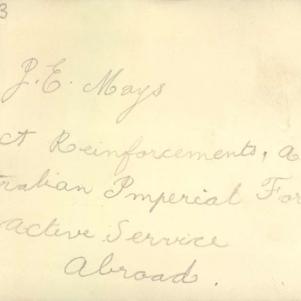 3
J. E. Mays
ct Reinforcements, a
tralian Imperial For
active Service
Abroad.